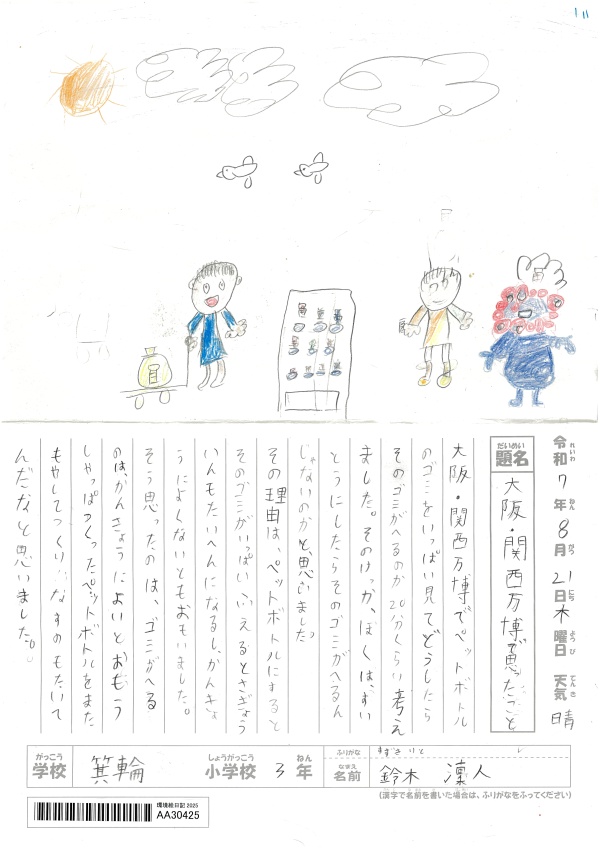 111
令和7年8月21日木曜日 天気 晴
れいわ ねん がつ にち ようび てんき
だいめい
題名 大阪・関西万博で思ったこと
大阪・関西万博でペットボトル
のゴミをいっぱい見てどうしたら
そのゴミがへるのか20分くらい考え
ました。そのけっか、ぼくは、すい
とうにしたらそのゴミがへるん
じゃないのかと、思いました。
その理由は、ペットボトルにすると
そのゴミがいっぱいふえるとさぎょう
いんもたいへんになるし、かんきょ
うによくないともおもいました。
そう思ったのは、ゴミがへる
のは、かんきょうによいとおもう
し
もやしてつくり
んだなと思いました。
がっこう しょうがっこう ねん
学校 箕輪 小学校 3年
ふりがな すずき り と
なまえ
名前 鈴木 凜人
(漢字で名前を書いた場合は、ふりがなをふってください)
環境絵日記2025
AA30425